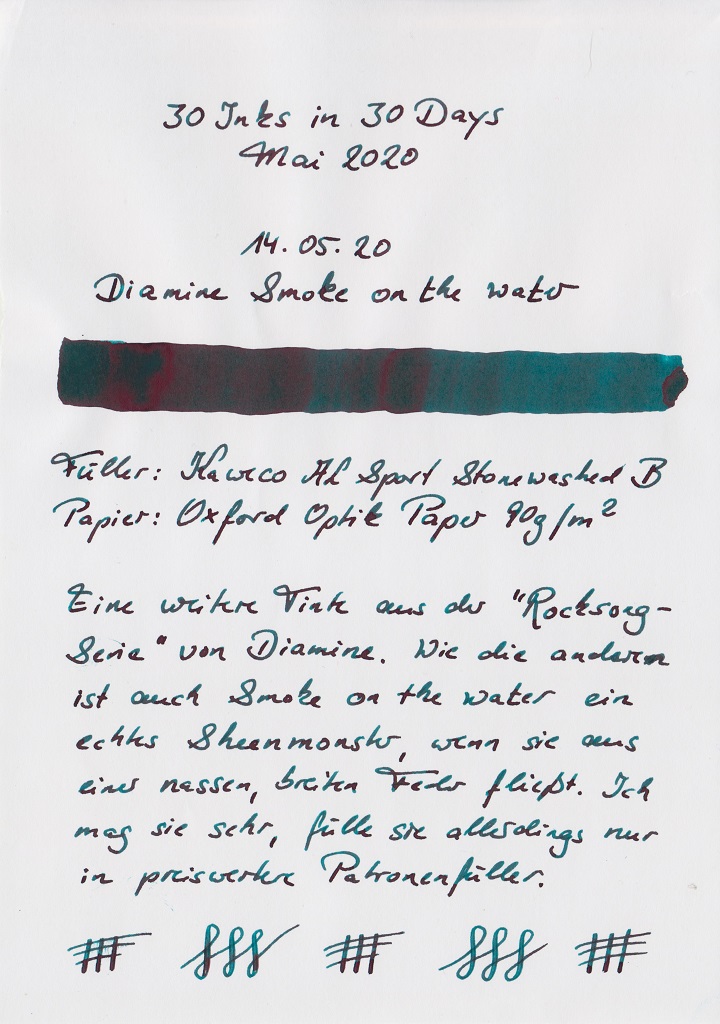 30 Inks in 30 Days
Mai 2020
14.05.20
Diamine Smoke on the water
Füller: Kaweco AL Sport Stonewashed B
Papier: Oxford Optik Paper 90g/m²
Eine weitere Tinte aus der "Rocksong-
Serie" von Diamine. Wie die anderen
ist auch Smoke on the water ein
echtes Sheenmonster, wenn sie aus
einer nassen, breiten Feder fließt. Ich
mag sie sehr, fülle sie allerdings nur
in preiswertere Patronenfüller.